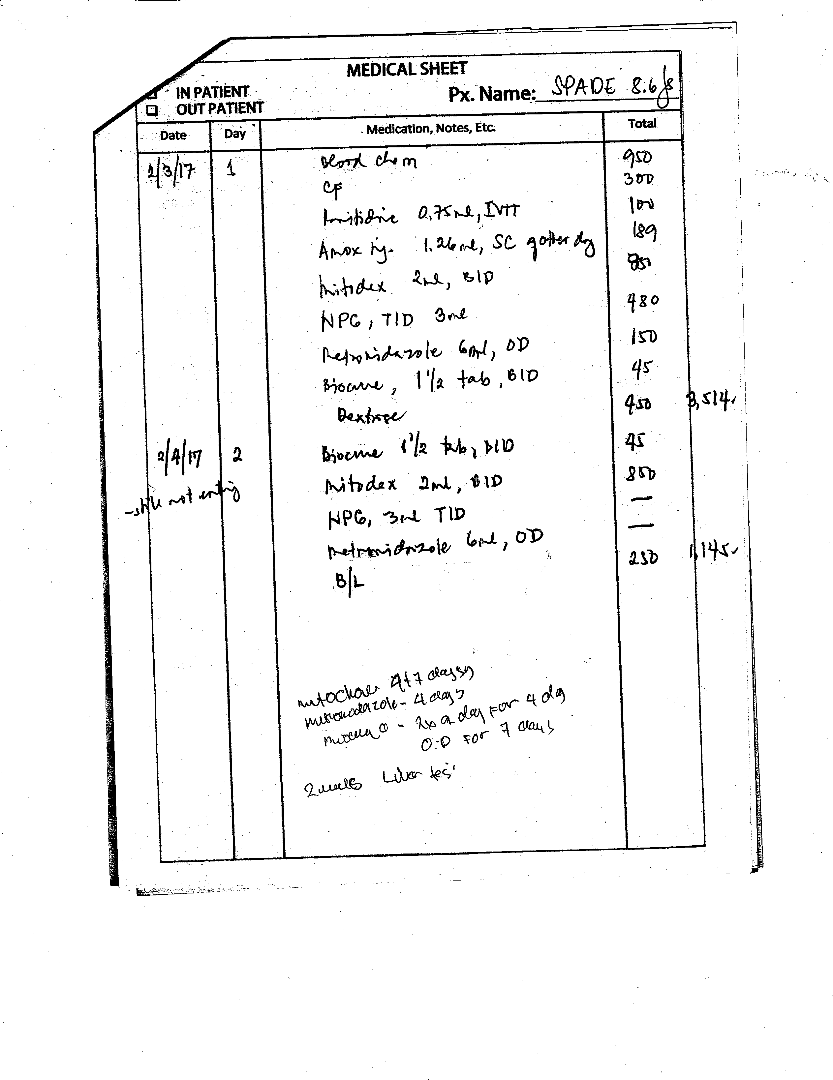 MEDICAL SHEET
IN PATIENT
OUT PATIENT
Px. Name: SPADE 8.6
Date Day Medication, Notes, Etc. Total
2/3/17 1 Blood chem 950
CP 300
0.75ml, IVIT 100
Amox inj. 1.26ml, SC q other day 189
2ml, BID 850
NPG, TID 3ml 480
Metronidazole 6ml, OD 150
1 1/2 tab, BID 45
Dextrose 450 3,514
2/4/17 2 1 1/2 tab, BID 45
-still not eating 2ml, BID 850
NPG, 3ml TID —
Metronidazole 6ml, OD —
B/L 250 1,145
7 days
- 4 days
- 2x a day For 4 day
O.D For 7 days
2 weeks Liver